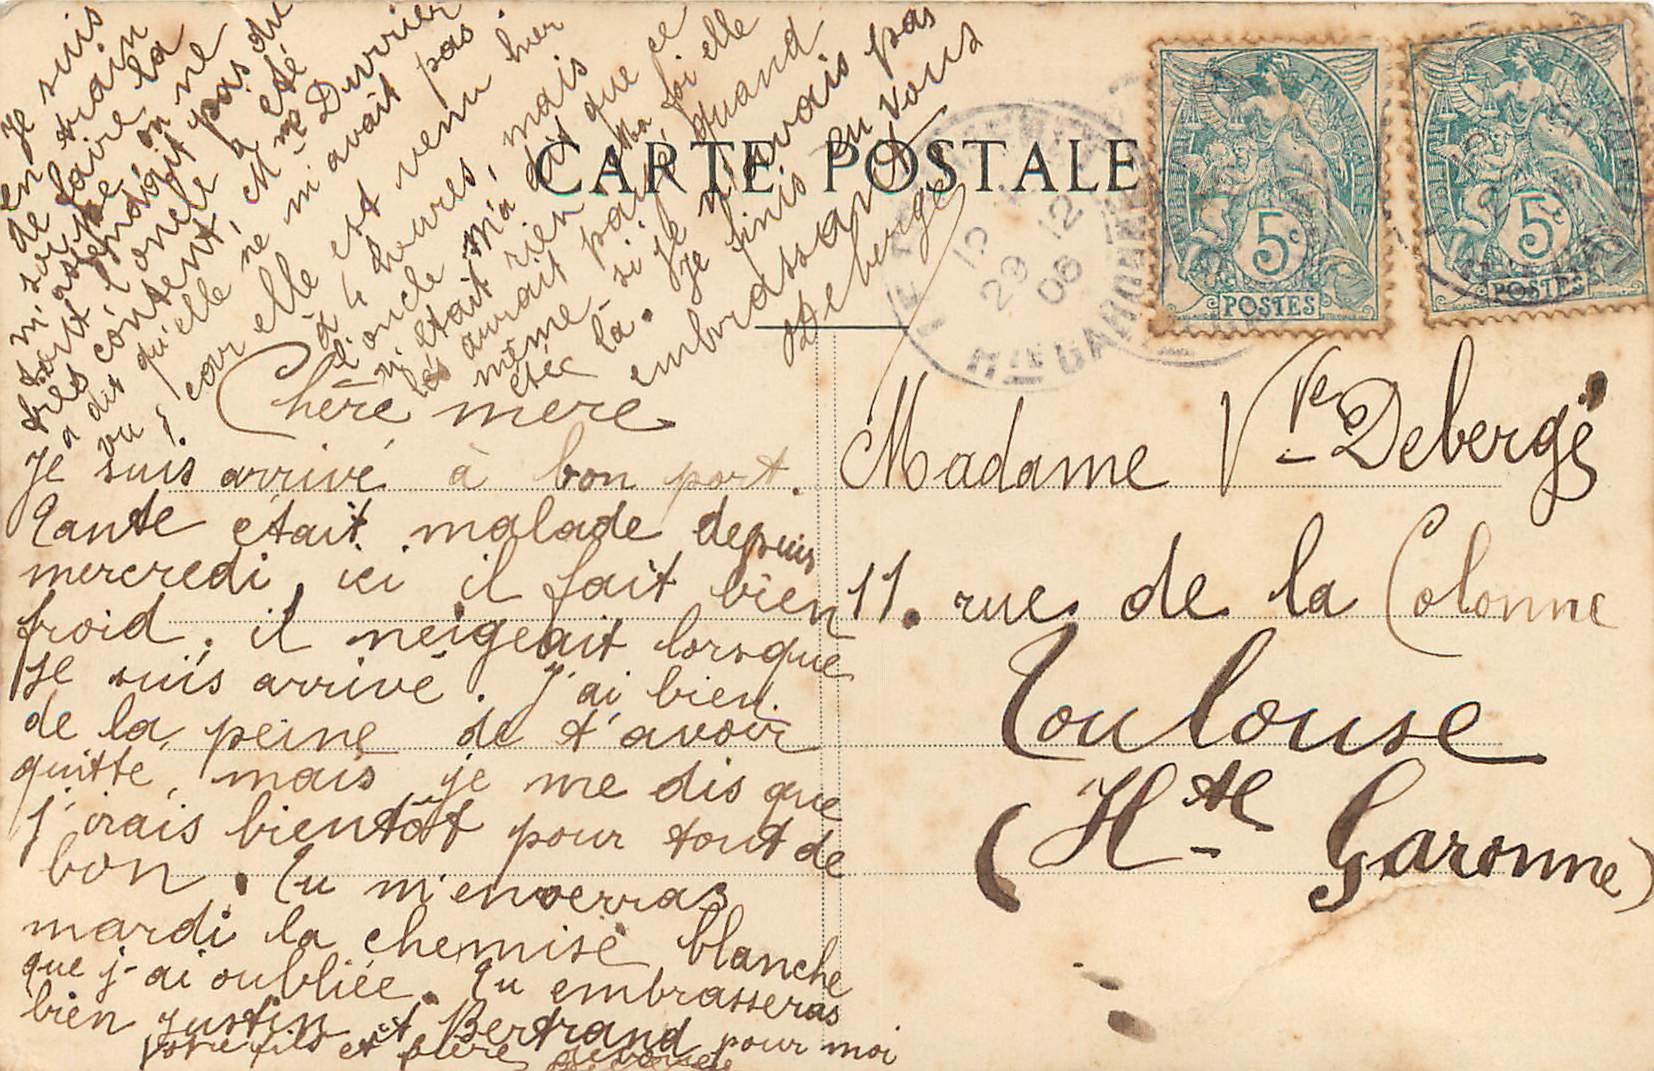 CARTE POSTALE
Chère mère
Je suis arrivé à bon port.
Tante était malade depuis
mercredi, ici il fait bien
froid. il neigeait lorsque
je suis arrivé. J'ai bien
de la peine de t'avoir
quitté, mais je me dis que
j'irais bientôt pour tout de
bon. Tu m'enverras
mardi la chemise blanche
que j'ai oubliée. Tu embrasseras
bien Justin et Bertrand pour moi
Votre fils et frère
Je suis
en train
de faire la
malade, on ne
m'attendait pas du
tout l'oncle a été
très content, Mme Duvrier
a dit qu'elle ne m'avait pas
vu, car elle est venu hier
à 4 heures, mais
l'oncle m'a dit que ce
n'était rien ma foi elle
aurait parlé quand
même si je n'avais pas
été là. Je finis en vous
embrassant
Deberge
Madame Vve Debergé
11. rue de la Colonne
Toulouse
(Hte Garonne)
POSTES
5c
POSTES
5c
29 12
06
Hte GARONNE